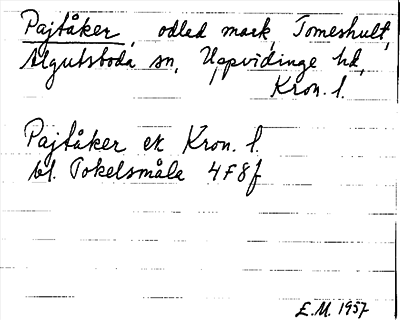 Pajtåker, odled mark, Tomeshult,
Algutsboda sn, Uppvidinge hd,
Kron. l.
Pajtåker ek Kron. l.
bl. Tokelsmåla 4F8f
E.M. 1957